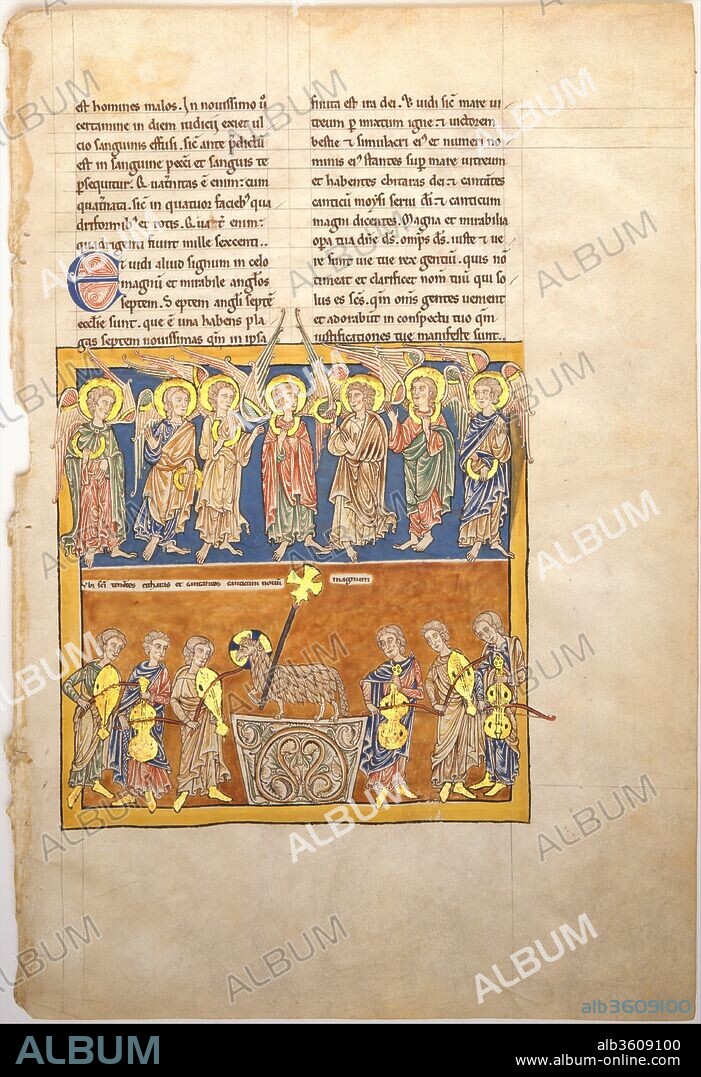 est homines malos. In novissimo u̅
certamine in diem iudicii exiet ul
cio sanguinis effusi. sic̅ ante p̅dictu̅
est in sanguine pecc̅i et sanguis te
p̅sequitur. Quat̅nitas e̅ enim: cum
quat̅nata. sic̅ in quatuor facieb; qua
driformib; et rotis. Quat̅ enim:
quadrigenti fiunt mille sexcenti..
Et vidi aliud signum in celo
magnu̅ et mirabile angl̅os
septem. Septem angli̅ septe̅
eccl̅ie sunt. que e̅ una habens pla
gas septem novissimas qm̅ in ipsa
finita est ira dei. Et vidi sic̅ mare vi
treum p̅ mixtum igne ⁊ victorem
bestie ⁊ simulacri ei᷒ et numeri no
minis ei᷒ stantes sup̅ mare vitreum
et habentes chitaras dei ⁊ cantantes
canticu̅ moysi servi di̅ ⁊ canticum
magni dicentes. Magna et mirabilia
opa tua dn̅e ds̅. omp̅s ds̅. iuste ⁊ ve
re sunt vie tue rex gentiu̅. quis no̅
timeat et clarificet nom̅ tuu̅ qui so
lus es sc̅s. qm̅ om̅s gentes venient
et adorabu̅t in conspectu tuo qm̅
iustificationes tue manifeste sunt..
Ubi sc̅i tenentes citharas et cantantes canticum novu̅ magnum
ALBUM
alb3609100
ALBUM
alb3609100
www.album-online.com